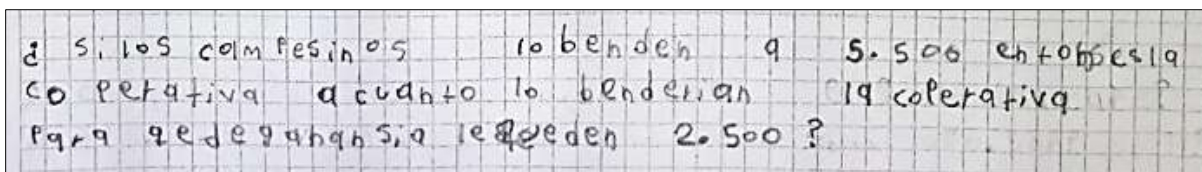 ¿ si los campesinos lo benden a 5.500 entonses la
coperativa a cuanto lo benderian la coperativa
para qe de ganansia le qeden 2.500 ?